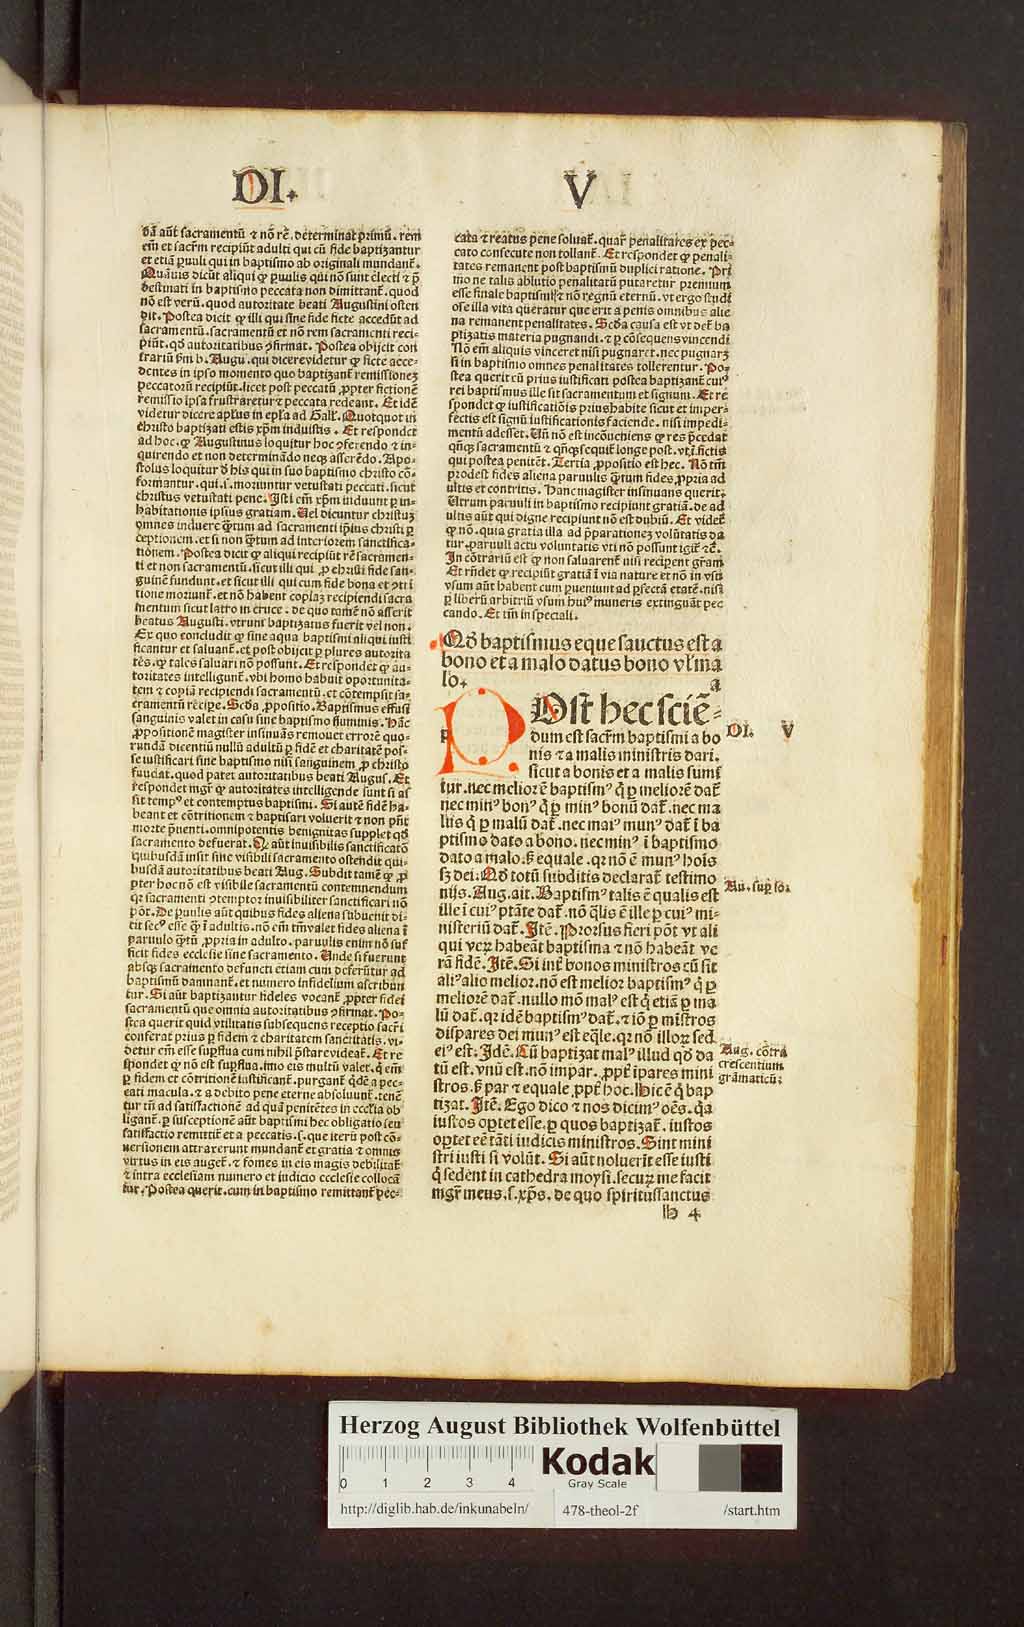 DI. V
dā aūt sacramentū ⁊ nō rē. determinat primū. rem
em̄ et sacr̄m recipiūt adulti qui cū fide baptizantur
et etiā ꝑuuli qui in baptismo ab originali mundant̄.
Quāuis dicūt aliqui ꝙ ꝑuulis qui nō sunt electi ⁊ p̄
destinati in baptismo peccata non dimittant̄. quod
nō est verū. quod autoritate beati Augustini osten
dit. Postea dicit ꝙ illi qui sine fide ficte accedūt ad
sacramentū. sacramentū et nō rem sacramenti reci-
piūt. qd̄ autoritatibus ꝯfirmat. Postea obijcit con
trariū ẜm b. Augu. qui dicere videtur ꝙ ficte acce-
dentes in ipso momento quo baptizant̄ remissionez
peccatorū recipiūt. licet post peccatū ꝓpter fictionē
remissio ipsa frustraretur ⁊ peccata redeant. Et idē
videtur dicere apl̄us in ep̄la ad Gall̄. Quotquot in
christo baptizati estis xp̄m induistis. Et respondet
ad hoc. ꝙ Augustinus loquitur hoc ꝯferendo ⁊ in-
quirendo et non determinādo neqꝫ asserēdo. Apo-
stolus loquitur d̄ his qui in suo baptismo christo cō-
formantur. qui .s. moriuntur vetustati peccati. sicut
christus vetustati pene. Isti em̄ xp̄m induunt ꝑ in-
habitationis ipsius gratiam. Uel dicuntur christuz
omnes induere q̄tum ad sacramenti ip̄ius christi ꝑ
ceptionem. et si non q̄tum ad interiorem sanctifica-
tionem. Postea dicit ꝙ aliqui recipiūt rē sacramen-
ti et non sacramentū. sicut illi qui ꝓ christi fide san-
guinē fundunt. et sicut illi qui cum fide bona et ꝯtri
tione moriunt̄. et nō habent copiaz recipiendi sacra
mentum sicut latro in cruce. de quo tamē nō asserit
beatus Augusti. vtrum baptizatus fuerit vel non.
Ex quo concludit ꝙ sine aqua baptismi aliqui iusti
ficantur et saluant̄. et post obijcit ꝑ plures autorita
tes. ꝙ tales saluari nō possunt. Et respondet ꝙ au-
toritates intelligunt̄. vbi homo habuit oportunita-
tem ⁊ copiā recipiendi sacramentū. et cōtempsit sa-
cramentū recipe. Scd̄a ꝓpositio. Baptismus effusi
sanguinis valet in casu sine baptismo fluminis. Hāc
ꝓpositionē magister insinuās remouet errorē quo-
rundā dicentiū nullū adultū ꝑ fidē et charitatē pos-
se iustificari sine baptismo nisi sanguinem ꝓ christo
fundat. quod patet autoritatibus beati Augus. Et
respondet mgr̄ ꝙ autoritates intelligende sunt si as
sit tempꝰ et contemptus baptismi. Si autē fidē ha-
beant et cōtritionem ⁊ baptisari voluerit ⁊ non pn̄t
morte p̄uenti. omnipotentis benignitas supplet qd̄
sacramento defuerat. Qꝛ aūt inuisibilis sanctificatō
quibusdā insit sine visibili sacramento ostendit qui-
busdā autoritatibus beati Aug. Subdit tamē ꝙ ꝓ
pter hoc nō est visibile sacramentū contemnendum
qꝛ sacramenti ꝯtemptor inuisibiliter sanctificari nō
pōt. De paruulis aūt quibus fides aliena subuenit di-
cit secꝰ esse ꝙ ī adultis. nō em̄ tm̄ valet fides aliena ī
paruulo q̄tū ꝓpria in adulto. paruulis enim nō suf
ficit fides ecclesie sine sacramento. Unde si fuerunt
absqꝫ sacramento defuncti etiam cum deferūtur ad
baptismū damnant̄. et numero infidelium ascribun
tur. Si aūt baptizantur fideles vocant̄ ꝓpter fidei
sacramentū que omnia autoritatibus ꝯfirmat. Po-
stea querit quid vtilitatis subsequens receptio sacr̄i
conferat prius ꝑ fidem ⁊ charitatem sanctitatis. vi-
detur em̄ esse supflua cum nihil p̄stare videat̄. Et re
spondet ꝙ nō est supflua. imo eis multū valet. q̄ em̄
ꝑ fidem et cōtritionē iustificant̄. purgant̄ q̄dē a pec-
cati macula. ⁊ a debito pene eterne absoluunt̄. tenē
tur tn̄ ad satisfactionē ad quā penitētes in ecclīa ob
ligant̄. ꝑ susceptionē aūt baptismi hec obligatio seu
satisfactio remittit̄ et a peccatis .s. que iterū post cō-
uersionem attraxerunt mundant̄ et gratia ⁊ omnis
virtus in eis auget̄. ⁊ fomes in eis magis debilitat̄
⁊ intra ecclesiam numero et iudicio ecclesie collocā
tur. Postea querit. cum in baptismo remittant̄ pec-
cata ⁊ reatus pene soluat̄. quar̄ penalitates ex pec-
cato consecute non tollant̄. Et respondet ꝙ penali-
tates remanent post baptismū duplici ratione. Pri
mo ne talis ablutio penalitatū putaretur premium
esse finale baptismi ⁊ nō regnū eternū. vt ergo studi
ose illa vita queratur que erit a penis omnibus alie
na remanent penalitates. Scd̄a causa est vt det̄ ba
ptizatis materia pugnandi. ⁊ ꝑ cōsequens vincendi
Nō em̄ aliquis vinceret nisi pugnaret. nec pugnarꝫ
si in baptismo omnes penalitates tollerentur. Po-
stea querit cū prius iustificati postea baptizant̄ cuiꝰ
rei baptismus ille sit sacramentum et signum. Et re
spondet ꝙ iustificatiōis prius habite sicut et imper-
fectis est signū iustificationis faciende. nisi impedi-
mentū adesset. Un̄ nō est incōueniens ꝙ res p̄cedat
qn̄qꝫ sacramentū ⁊ qn̄qꝫ sequit̄ longe post. vt ī fictis
qui postea penitēt. Tertia ꝓpositio est hec. Nō tm̄
prodest fides aliena paruulis q̄tum fides ꝓpria ad
ultis et contritis. Hanc magister insinuans querit.
Utrum paruuli in baptismo recipiunt gratiā. de ad
ultis aūt qui digne recipiunt nō est dubiū. Et videt̄
ꝙ nō. quia gratia illa ad p̄parationez volūtatis da
tur. paruuli actu voluntatis vti nō possunt igit̄ ⁊c̄.
In cōtrariū est ꝙ non saluarent̄ nisi recip̄ent grām
Et rn̄det ꝙ recipiūt gratiā ī via nature et nō in vsū
vsum aūt habent cum ꝑueniunt ad ꝑfectā etatē. nisi
ꝑ liberū arbitriū vsum huiꝰ muneris extinguāt pec
cando. Et tm̄ in speciali.
Qd̄ baptismus eque sanctus est a
bono et a malo datus bono vl̄ ma
lo. a
Post hec sciē-
dum est sacr̄m baptismi a bo
nis ⁊ a malis ministris dari.
sicut a bonis et a malis sumi
tur. nec meliorē baptismꝰ q̄ ꝑ meliorē dat̄
nec minꝰ bonꝰ q̄ ꝑ minꝰ bonū dat̄. nec ma
lus q̄ ꝑ malū dat̄. nec maiꝰ munꝰ dat̄ ī ba
ptismo dato a bono. nec minꝰ ī baptismo
dato a malo. ẜ equale. qꝛ nō ē munꝰ hoīs
sꝫ dei. Qd̄ totū subditis declarat̄ testimo
nijs. Aug. ait. Baptismꝰ talis ē qualis est
ille ī cuiꝰ ptāte dat̄. nō q̄lis ē ille ꝑ cuiꝰ mi-
nisteriū dat̄. Itē. Prorsus fieri pōt vt ali
qui veꝝ habeāt baptisma ⁊ nō habeāt ve
rā fidē. Itē. Si int̄ bonos ministros cū sit
aliꝰ alio melior. nō est melior baptismꝰ q̄ ꝑ
meliorē dat̄. nullo mō malꝰ est q̄ etiā ꝑ ma
lū dat̄. qꝛ idē baptismꝰ dat̄. ⁊ iō ꝑ mīstros
dispares dei munꝰ est eq̄le. qꝛ nō illoꝝ sed
eiꝰ est. Idē. Cū baptizat malꝰ illud qd̄ da
tū est. vnū est. nō impar. ꝓpt̄ īpares mini
stros. ẜ par ⁊ equale ꝓpt̄ hoc. Hic ē q̄ bap
tizat. Itē. Ego dico ⁊ nos dicimꝰ oēs. q̄a
iustos oꝑtet esse. ꝑ quos baptizat̄. iustos
oꝑtet eē tāti iudicis ministros. Sint mini
stri iusti si volūt. Si aūt noluerīt esse iusti
q̄ sedent in cathedra moysi. secuꝝ me facit
mgr̄ meus .s. xp̄s. de quo spiritussanctus
h 4
DI. V
Au. sup̄ Io.
Aug. cōtra
crescentium
grāmaticū:
Herzog August Bibliothek Wolfenbüttel
0 1 2 3 4
Kodak
Gray Scale
http://diglib.hab.de/inkunabeln/ 478-theol-2f /start.htm